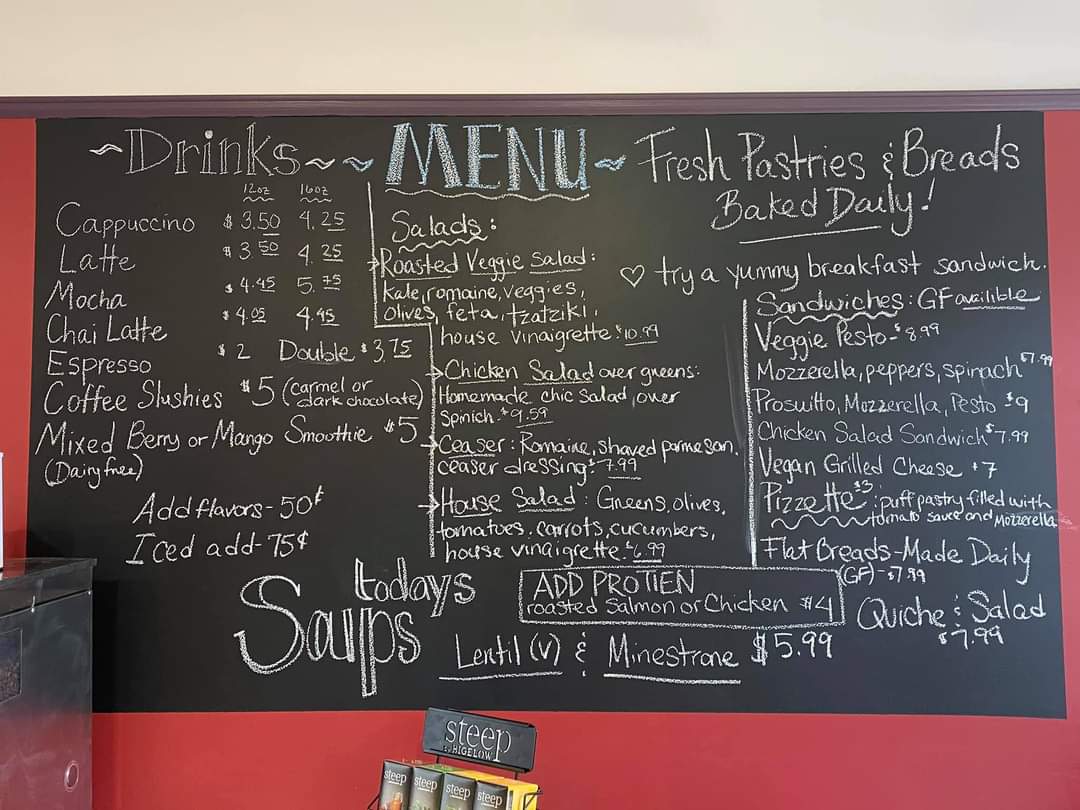 ~Drinks~
12oz 16oz
Cappuccino $3.50 4.25
Latte $3.50 4.25
Mocha $4.45 5.75
Chai Latte $4.05 4.95
Espresso $2 Double $3.75
Coffee Slushies $5 (carmel or
dark chocolate)
Mixed Berry or Mango Smoothie $5
(Dairy free)
Add flavors - 50¢
Iced add - 75¢
~MENU~
Salads:
Roasted Veggie Salad:
kale, romaine, veggies,
olives, feta, tzatziki,
house vinaigrette. $10.99
Chicken Salad over greens:
Homemade chic salad, over
Spinich. $9.59
Ceaser: Romaine, shaved parmesan,
ceaser dressing $7.99
House Salad: Greens, olives,
tomatoes, carrots, cucumbers,
house vinaigrette. $6.99
ADD PROTIEN
roasted Salmon or Chicken $4
Fresh Pastries & Breads
Baked Daily!
♡ try a yummy breakfast sandwich.
Sandwiches: GF availible
Veggie Pesto - $8.99
Mozzerella, peppers, spinach $7.99
Prosuitto, Mozzerella, Pesto - $9
Chicken Salad Sandwich $7.99
Vegan Grilled Cheese $7
Pizzette $5: puff pastry filled with
tomato sauce and Mozzerella
Flat Breads - Made Daily
(GF) - $7.99
Quiche & Salad
$7.99
todays
Soups
Lentil (V) & Minestrone $5.99
steep
BY BIGELOW
steep
steep
steep
steep